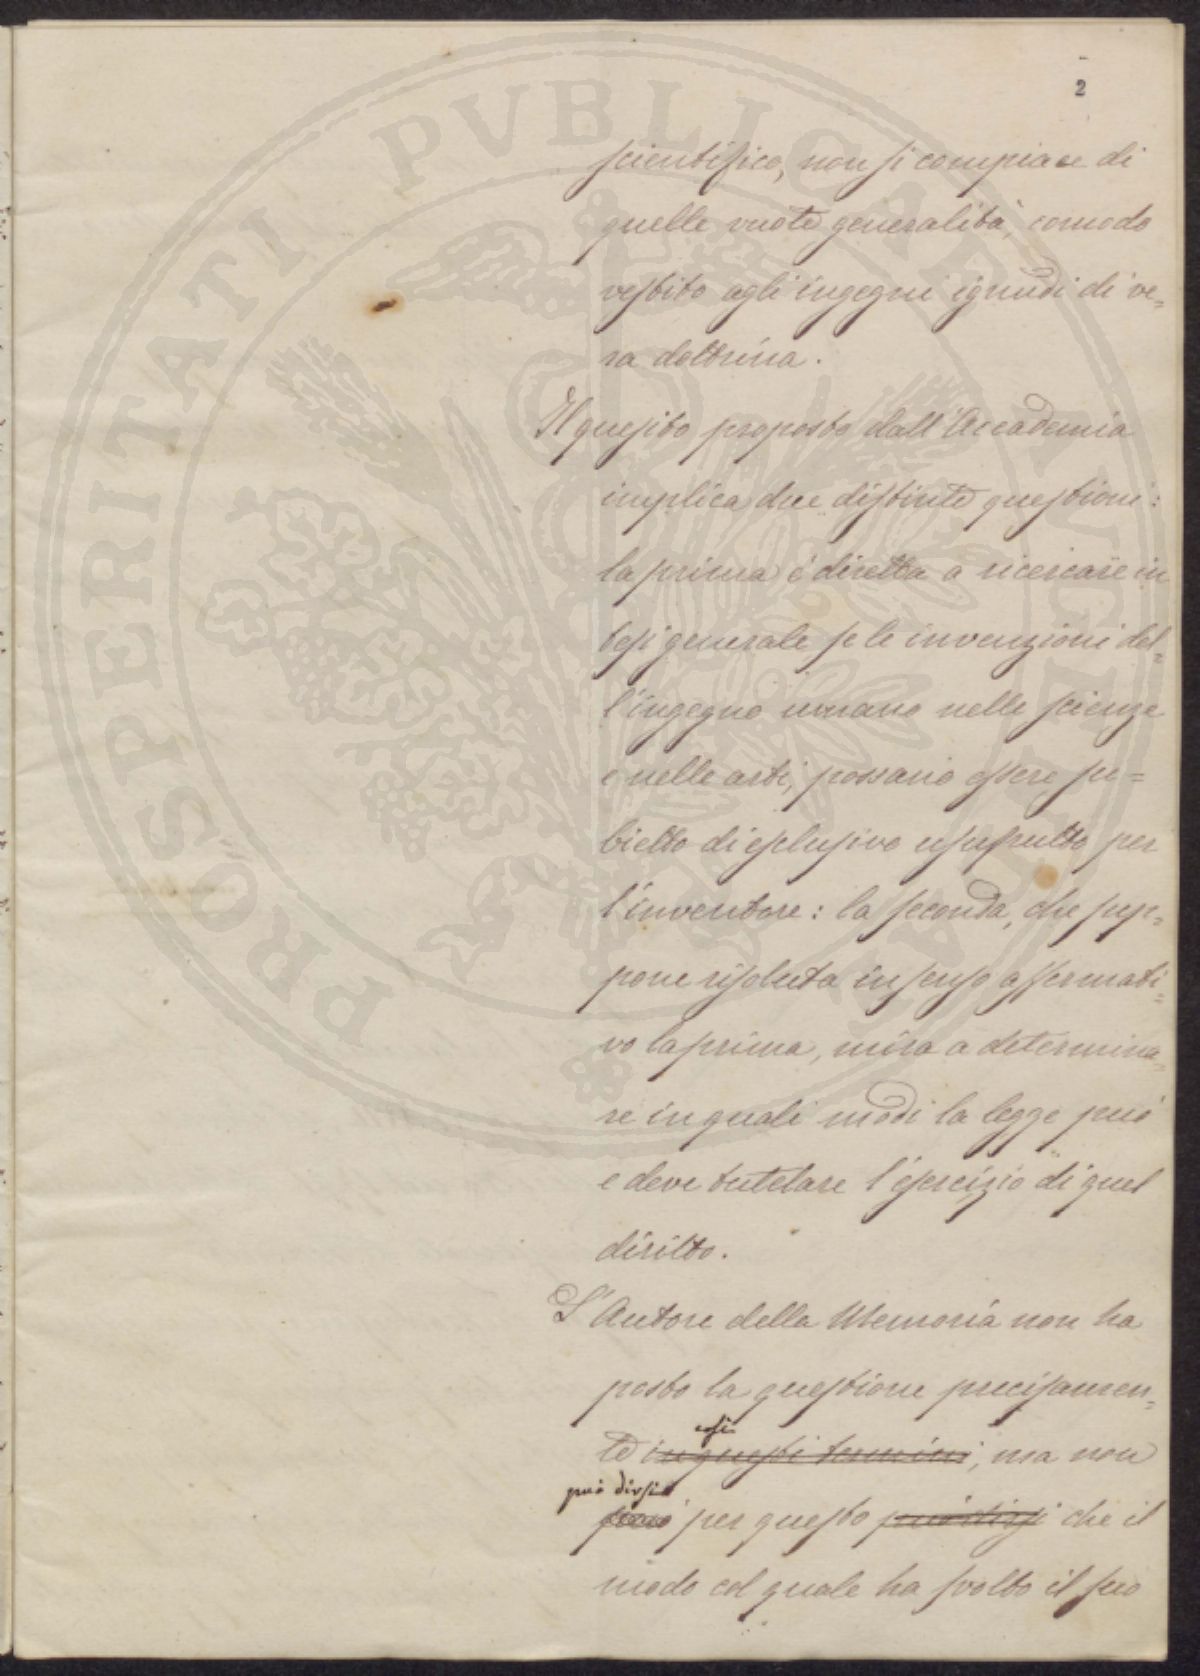 2
scientifico, non si compiace di
quelle vuote generalità, comodo
vestito agli ingegni ignudi di ve=
ra dottrina.
Il quesito proposto dall'Accademia
implica due distinte questioni:
la prima è diretta a ricercare in
tesi generale se le invenzioni del=
l'ingegno umano nelle scienze
e nelle arti, possano essere su=
bietto di esclusivo usufrutto per
l'inventore: la seconda, che sup=
pone risoluta in senso affermati=
vo la prima, mira a determina=
re in quali modi la legge può
e deve tutelare l'esercizio di quel
diritto.
L'Autore della Memoria non ha
posto la questione precisamen=
così
te in questi termini, ma non
può dirsi
però per questo può dirsi che il
modo col quale ha svolto il suo
PROSPERITATI PVBLICAE AVGENDAE